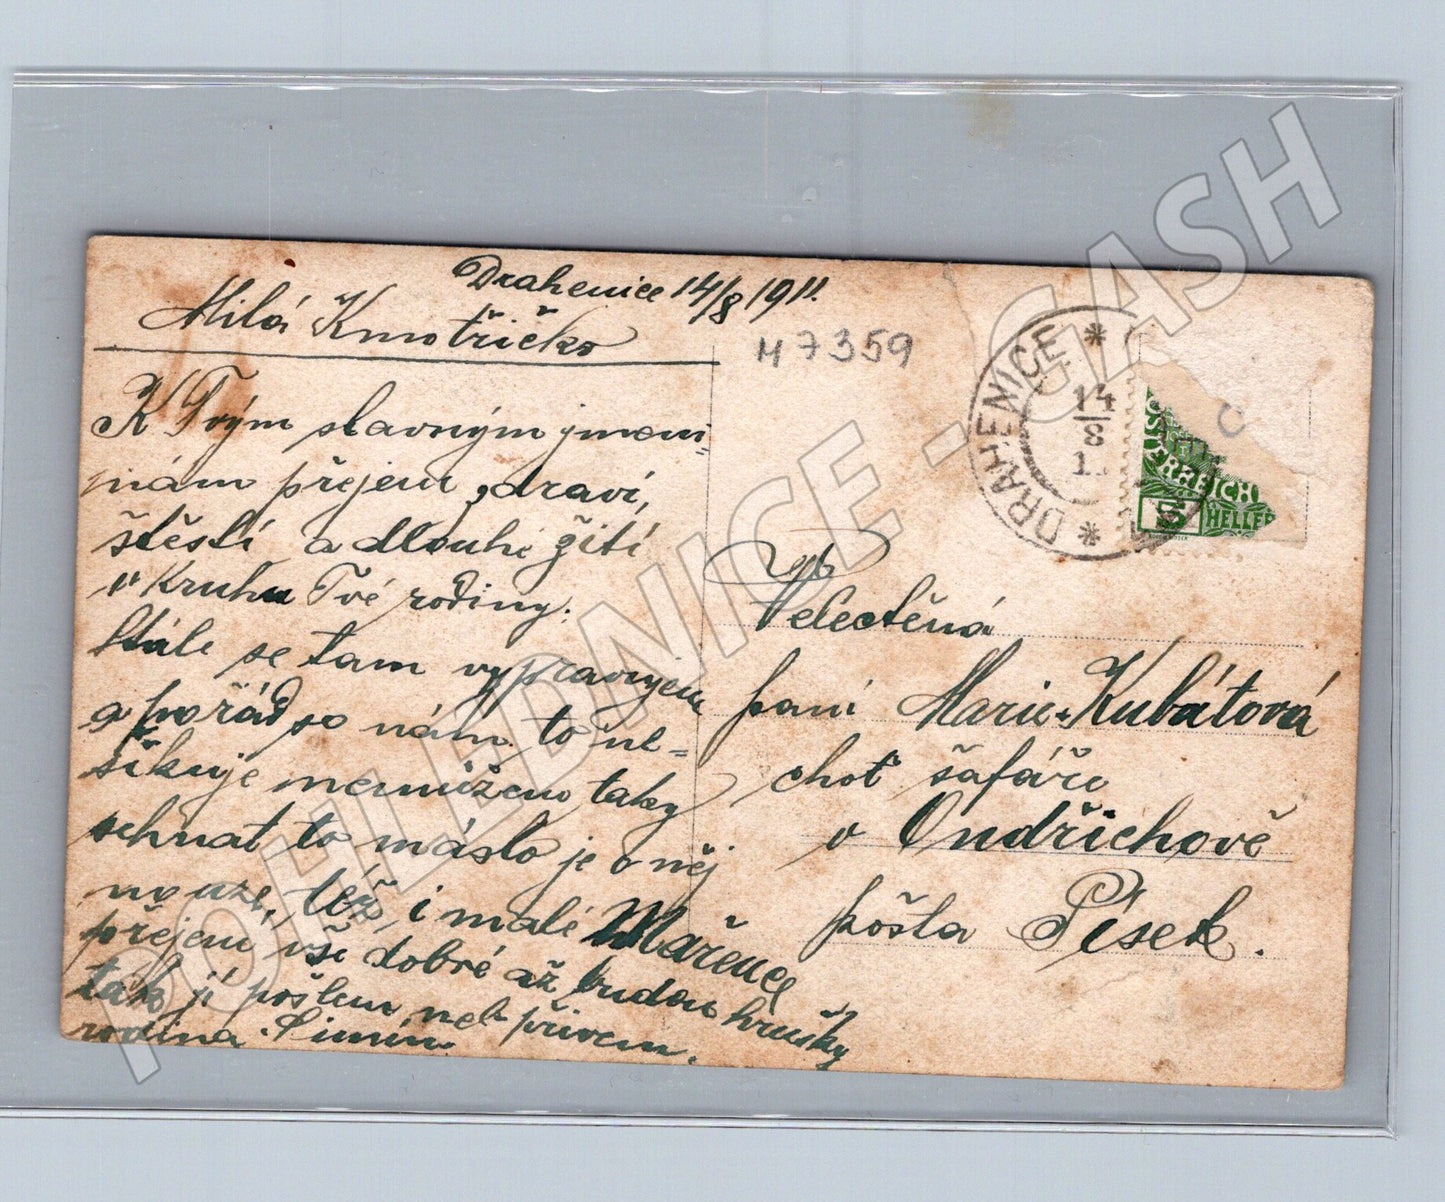 Drahenice 14/8 1911.
Milá Kmotřičko
K Tvým slavným jmeni-
nám přejem zdraví,
štěstí a dlouhé žití
v Kruhu Tvé rodiny.
Stále se tam vypravujem
a pořád se nám to ne-
šikuje nemůžem taky
sehnat to máslo je o něj
nouze, též i malé Mařence
přejem vše dobré až budou hrušky
tak jí pošlem neb přivem.
rodina Simín.
H 7359
DRAHENICE
14
8
ÖSTERREICH
5 HELLER
Velectěná
paní Marie Kubátová
choť šafáře
v Ondřichově
pošta Písek.
POHLEDNICE - CASH